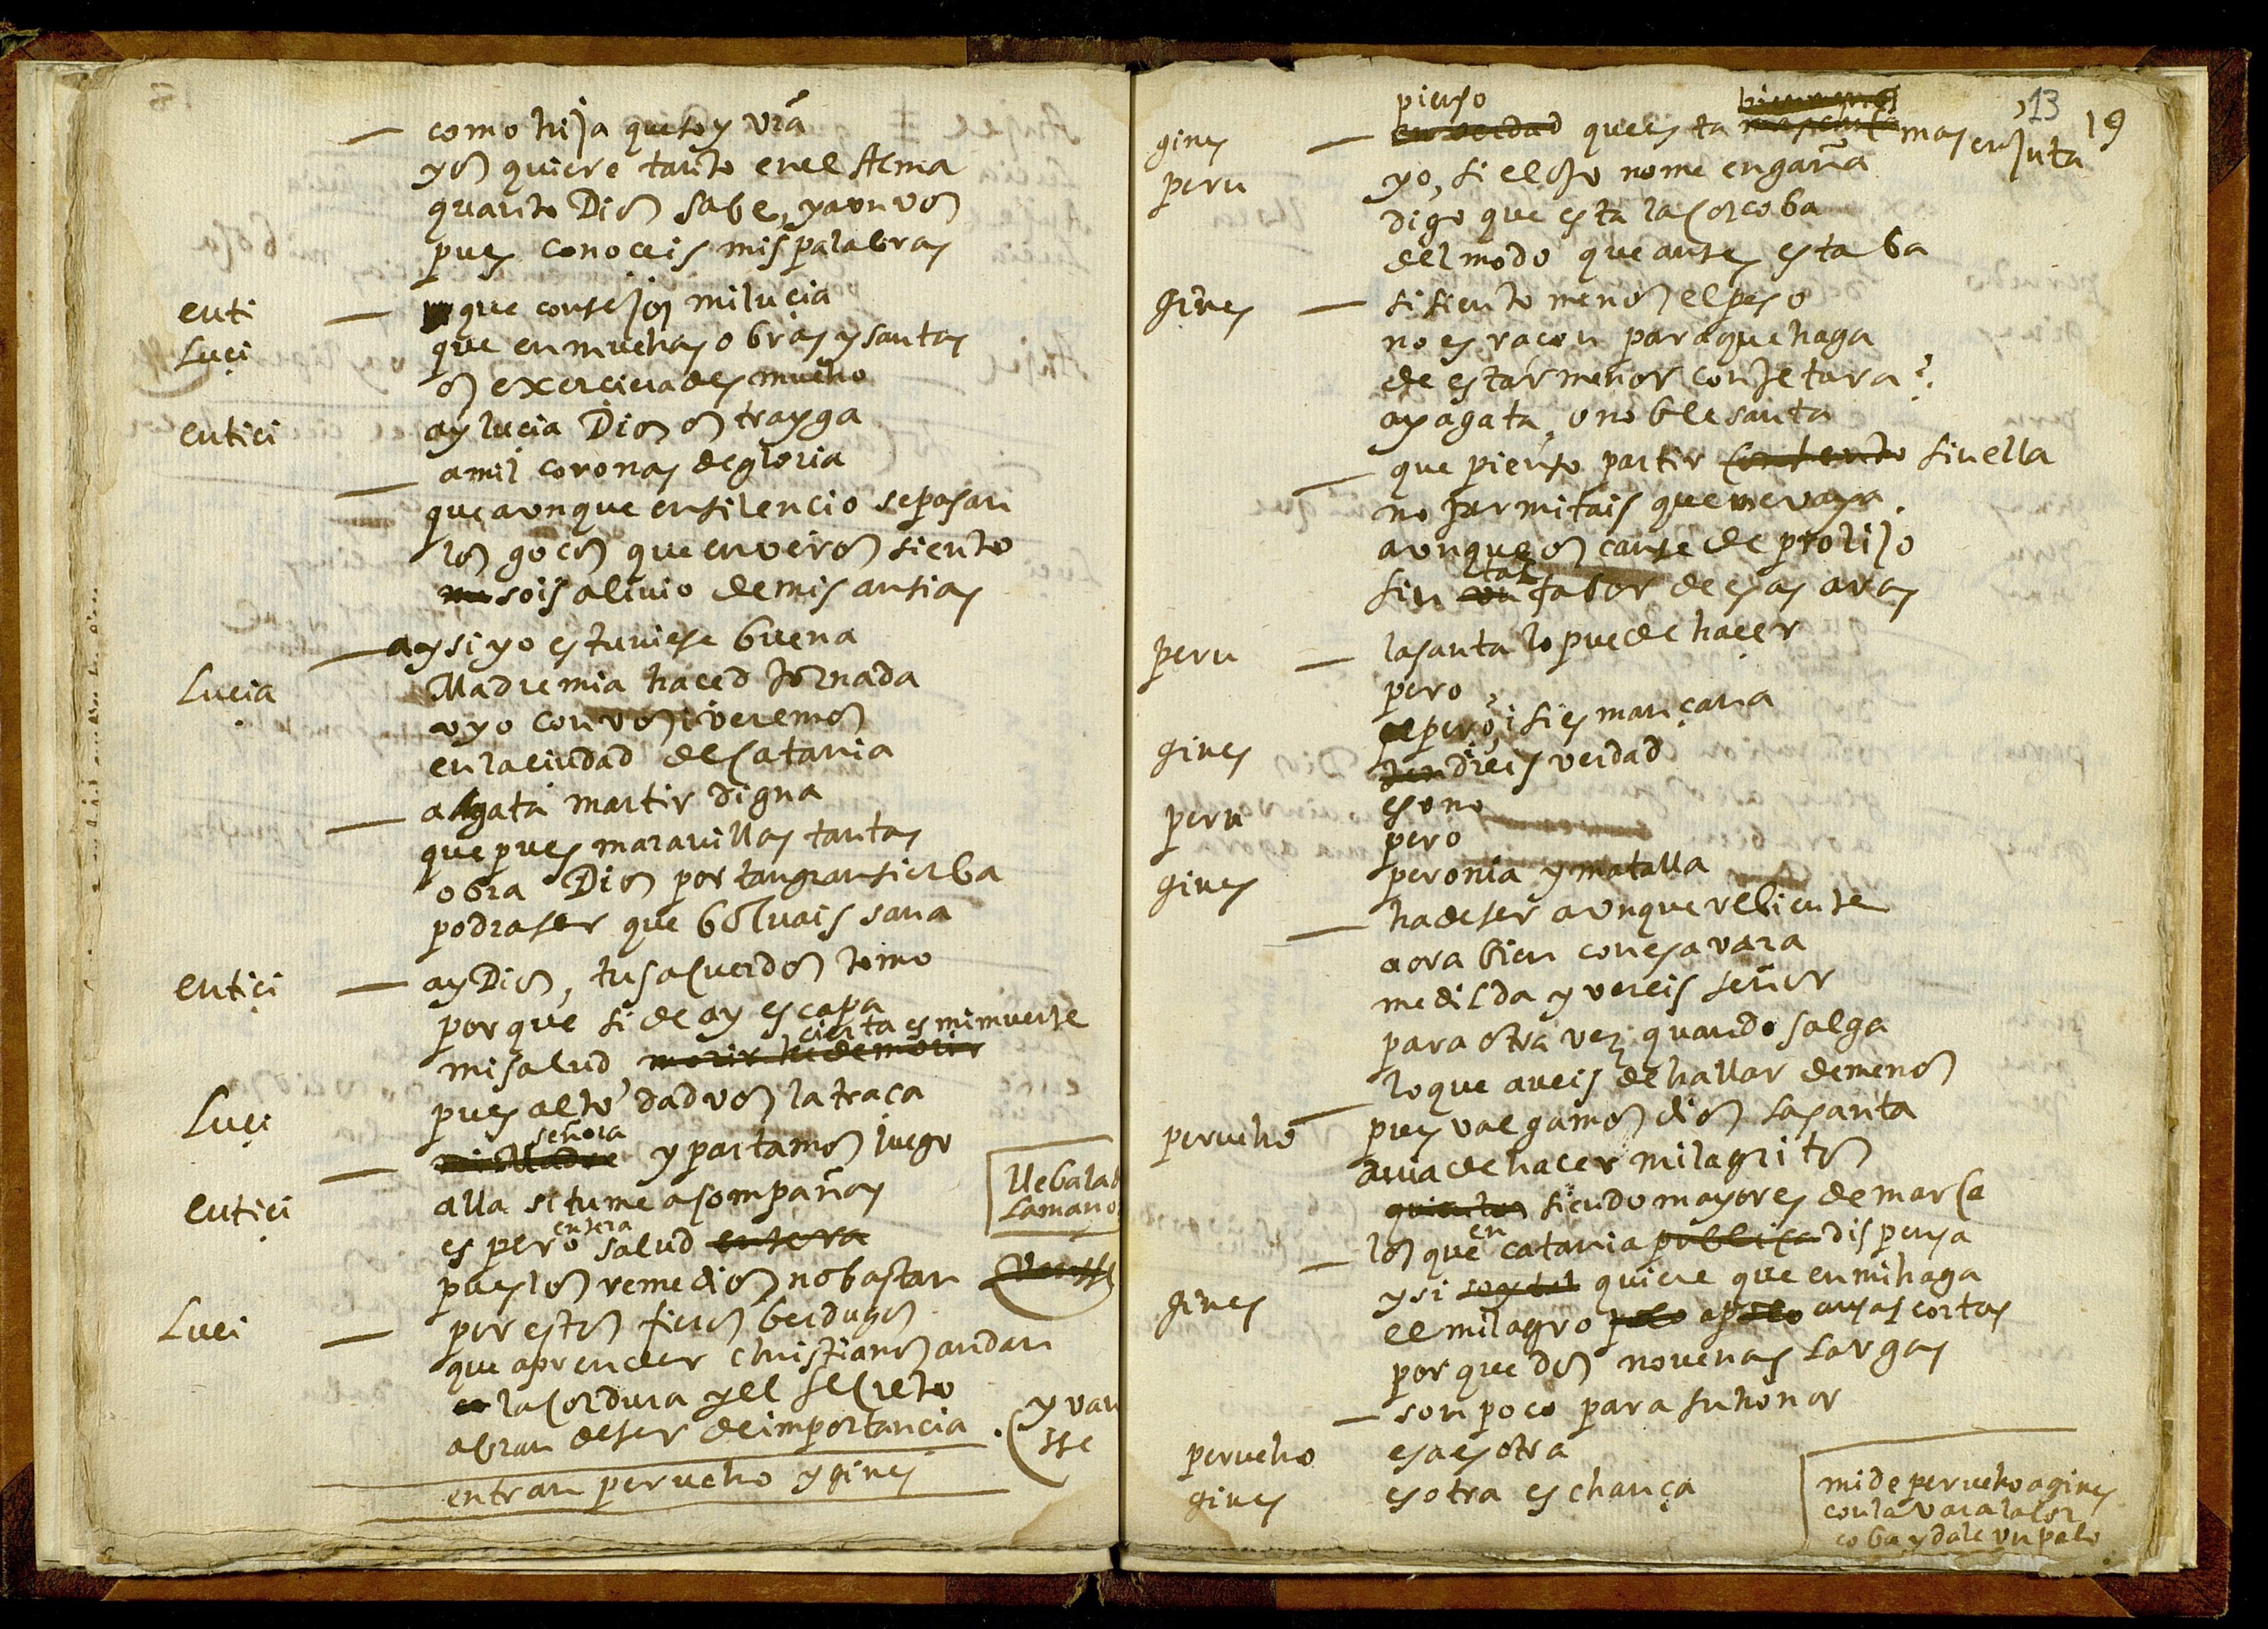 como hija que soy vrã
y os quiere tanto en el Alma
quanto Dios sabe, y aun vos
pues conoceis mis palabras
euti que consejos mi luçia
Luçi que en muchas obras y santas
os exerciera des mucho
eutiçi ay luçia Dios os trayga
a mil coronas de gloria
que aunque en silencio se pasan
los goços que en veros siento
sois alivio de mis ansias
ay si yo estuviese buena
Luçia Madre mia haced Jornada
y yo con vos i veremos
en la ciudad de Catania
a Agata martir digna
que pues maravillas tantas
obra Dios por tan gran sierba
podra ser que bolvais sana
eutiçi ay Dios, tus acuerdos tomo
porque si de ay escapa
cierta es mi muerte
mi salud, morir he de morir
Luçi pues alto dad vos la traça
señora
mi Madre y partamos luego
eutiçi alla si tu me acompañas
entera
espero salud entera
pues los remedios no bastan
llebala
la mano
vansse
Luci por estos fieros berdugos
que a prender christianos andan
la cordura y el secreto
abran de ser de importancia
y van
sse
entran perucho y gines
13 19
pienso
gines en verdad que esta mas enjuta
peru yo, si el ojo no me engaña
digo que esta la corcoba
del modo que antes estaba
gines si siento menos el peso
no es raçon para que haga
de estar menor conJetura?
ay agata, o noble santa
que pienso partir contento sin ella
no permitais que me vaya.
aunque os canse de prolijo
tal
sin un fabor de esas aras
peru la santa lo puede haçer
pero
gines pero? si es mançana
diçis verdad
peru eso no
pero
gines peronia y matalla
ha de ser aunque rebiente
aora bien con esa vara
medilda y vereis señor
para otra vez quando salga
lo que aveis de hallar de menos
perucho pues valgamos dios la santa
avia de hacer milagritos
siendo mayores de marca
en
los que catania publica dispensa
gines y si soy tal quiere que en mi haga
el milagro a ausas cortas
porque dos novenas largas
son poco para su honor
perucho esa es otra
gines esotra es chança
mide perucho a gines
con la vara la cor
coba y dale un palo